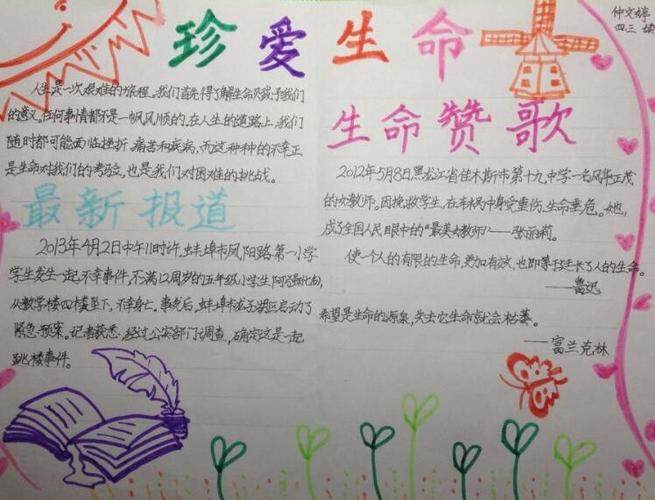 珍爱生命
仲文婷
四三
人生是一次艰难的旅程。我们首先得了解生命赋予我们
的意义。任何事情都不是一帆风顺的,在人生的道路上,我们
随时都可能面临挫折、痛苦和疾病,而这种种的不幸正
是生命对我们的考验,也是我们对困难的挑战。
最新报道
2013年4月2日中午11时许,蚌埠市凤阳路第一小学
学生发生一起不幸事件,不满12周岁的五年级小学生阿
从教学楼四楼坠下,不幸身亡。事发后,蚌埠市龙子湖区启动了
紧急预案。记者获悉,经过公安部门调查,确定这是一起
跳楼事件。
生命赞歌
2012年5月8日,黑龙江省佳木斯市第十九中学一名风华正茂
的女教师。因挽救学生,在车祸中身受重伤,生命垂危。她,
成了全国人民眼中的“最美女教师”——张丽莉。
使一个人的有限的生命,更加有效,也即等于延长了人的生命。
——鲁迅
希望是生命的源泉,失去它生命就会枯萎。
——富兰克林